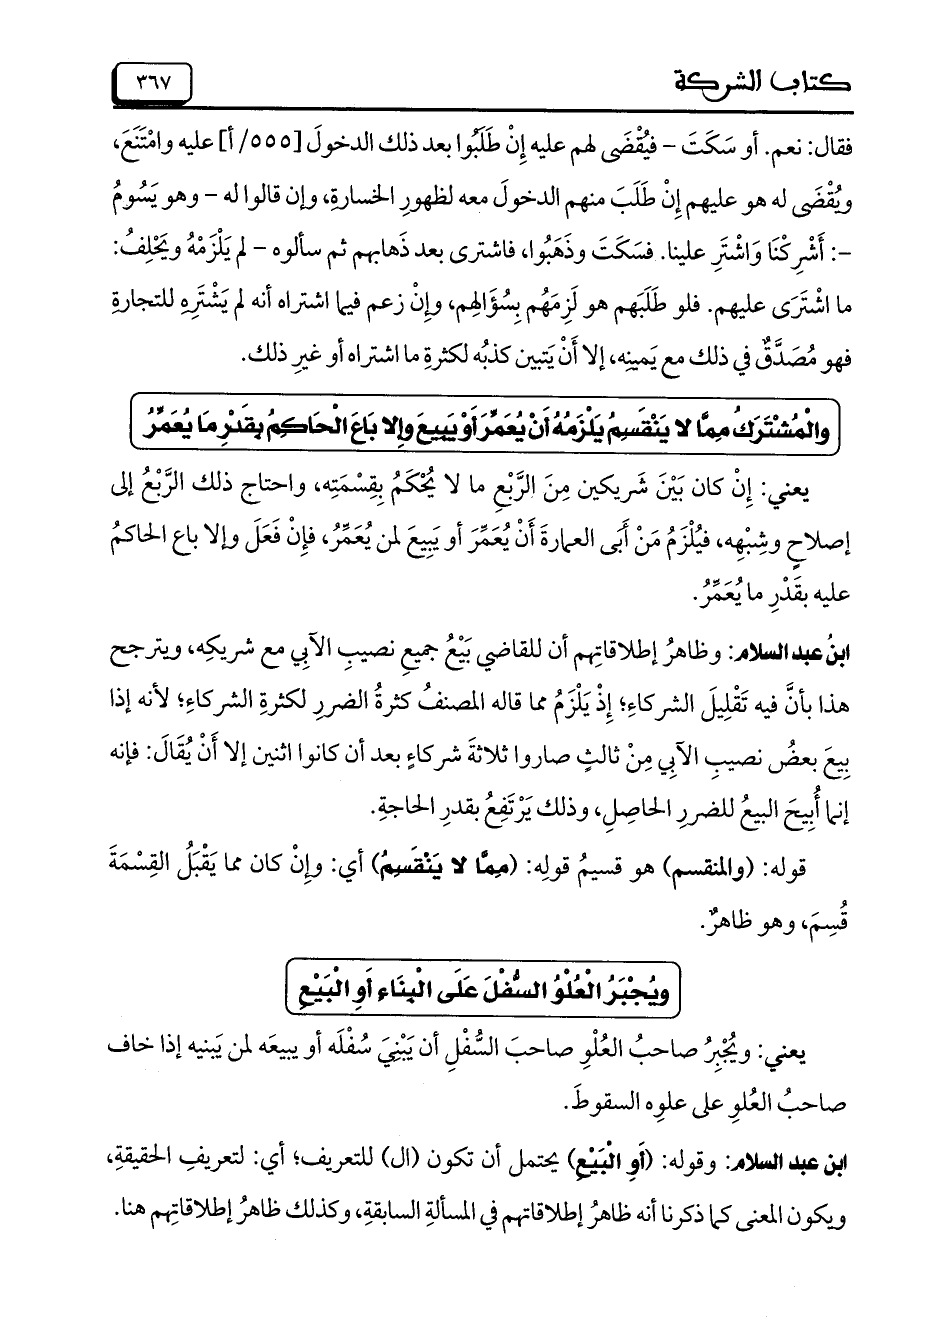 كتاب الشركة
٣٦٧
فقال: نعم. أو سَكَتَ – فيُقْضَى لهم عليه إِنْ طَلَبُوا بعد ذلك الدخولَ [٥٥٥/ أ] عليه وامْتَنَعَ،
ويُقْضَى له هو عليهم إِنْ طَلَبَ منهم الدخولَ معه لظهورِ الخسارةِ، وإن قالوا له – وهو يَسُومُ
–: أَشْرِكْنَا وَاشْتَرِ علينا. فسَكَتَ وذَهَبُوا، فاشترى بعد ذهابهم ثم سألوه – لم يَلْزَمْهُ ويَحْلِفُ:
ما اشْتَرَى عليهم. فلو طَلَبَهم هو لَزِمَهُم بِسُؤَالهِم، وإِنْ زعم فيما اشتراه أنه لم يَشْتَرِهِ للتجارةِ
فهو مُصَدَّقٌ في ذلك مع يَمينِه، إلا أَنْ يَتبين كذبُه لكثرةِ ما اشتراه أو غيرِ ذلك.
والْمُشْتَرَكُ مِمَّا لا يَنْقَسِمُ يَلْزَمُهُ أَنْ يُعَمِّرَ أَوْ يَبِيعَ وإلا بَاعَ الْحَاكِمُ بِقَدْرِ مَا يُعَمِّرُ
يعني: إِنْ كان بَيْنَ شريكين مِنَ الرَّبْعِ ما لا يُحْكَمُ بِقِسْمَتِه، واحتاج ذلك الرَّبْعُ إلى
إصلاحٍ وشِبْهِه، فيُلْزَمُ مَنْ أَبى العمارةَ أَنْ يُعَمِّرَ أو يَبِيعَ لمن يُعَمِّرُ، فإِنْ فَعَلَ وإلا باع الحاكمُ
عليه بقَدْرِ ما يُعَمِّرُ.
ابنُ عبد السلام: وظاهرُ إطلاقاتِهم أن للقاضي بَيْعُ جميعِ نصيبِ الآبي مع شريكِه، ويترجح
هذا بأنَّ فيه تَقْلِيلَ الشركاءِ؛ إِذْ يَلْزَمُ مما قاله المصنفُ كثرةُ الضررِ لكثرةِ الشركاءِ؛ لأنه إذا
بِيعَ بعضُ نصيبِ الآبي مِنْ ثالثٍ صاروا ثلاثةَ شركاءٍ بعد أن كانوا اثنين إلا أَنْ يُقَالَ: فإنه
إنما أُبِيحَ البيعُ للضررِ الحاصلِ، وذلك يَرْتَفِعُ بقدرِ الحاجةِ.
قوله: (والمنقسم) هو قسيمُ قولِه: (مِمَّا لا يَنْقَسِمُ) أي: وإِنْ كان مما يَقْبَلُ القِسْمَةَ
قُسِمَ، وهو ظاهرٌ.
ويُجْبَرُ الْعُلْوُ السُّفْلَ عَلَى الْبِنَاء أَوِ الْبَيْعِ
يعني: ويُجْبِرُ صاحبُ العُلْوِ صاحبَ السُّفْلِ أن يَبْنِيَ سُفْلَه أو يبيعَه لمن يَبنيه إذا خاف
صاحبُ العُلوِ على علوِه السقوطَ.
ابن عبد السلام: وقوله: (أَوِ الْبَيْعِ) يحتمل أن تكون (ال) للتعريف؛ أي: لتعريفِ الحقيقةِ،
ويكون المعنى كما ذكرنا أنه ظاهرُ إطلاقاتهم في المسألةِ السابقةِ، وكذلك ظاهرُ إطلاقاتِهم هنا.